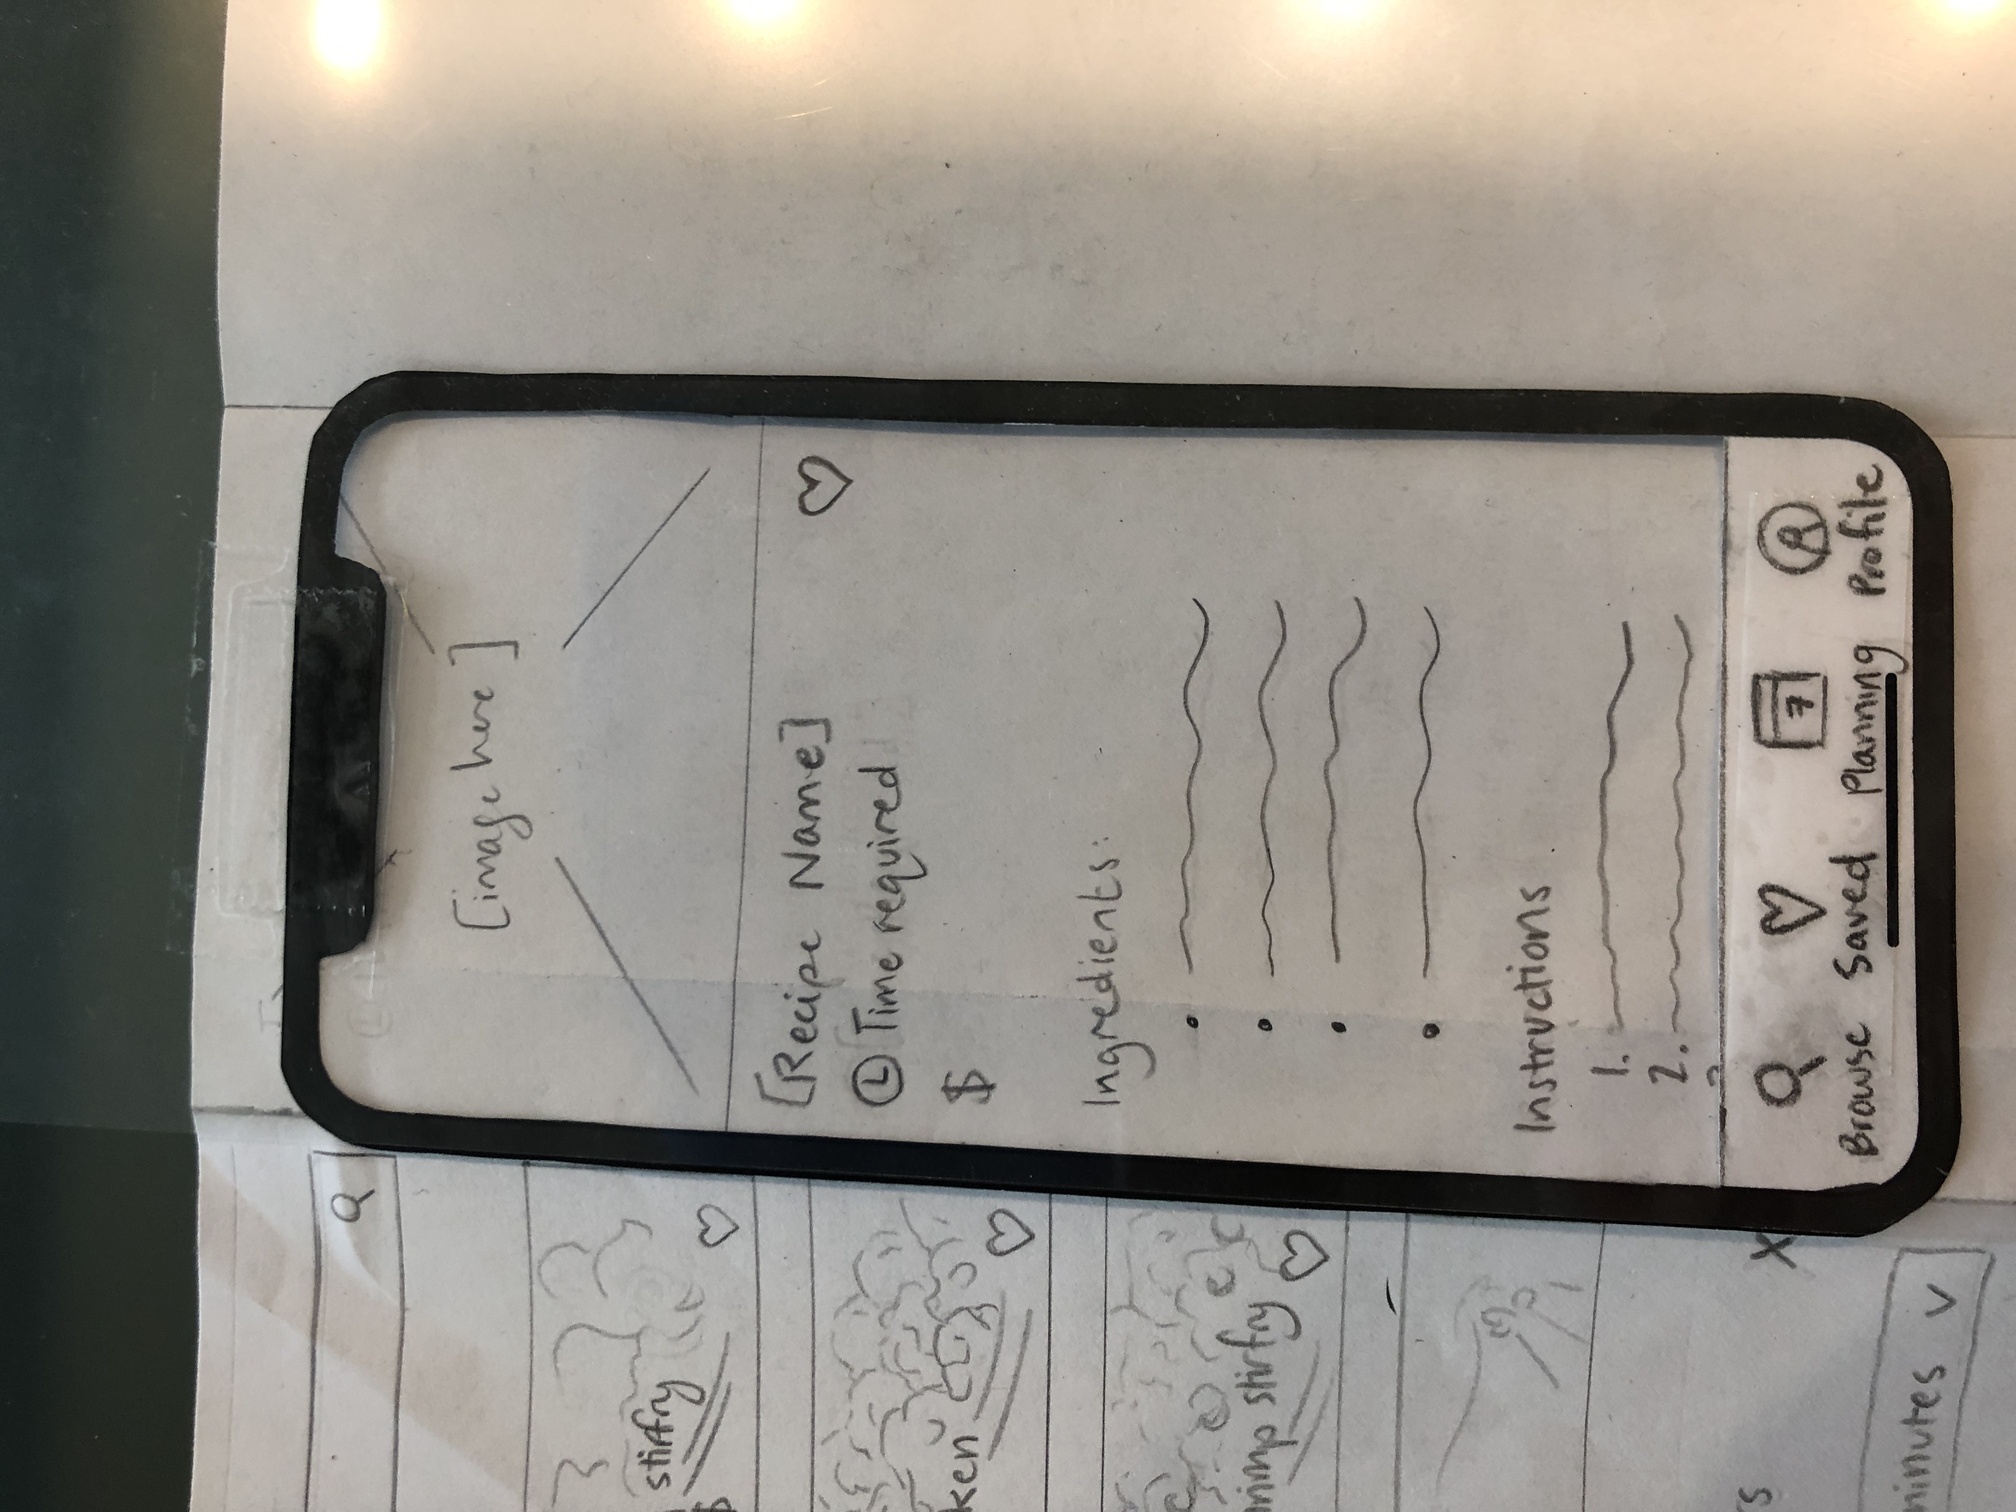 stirfry
$
ken
rimp stirfry
s
X
minutes
[image here]
[Recipe Name]
Time required
$
Ingredients:
Instructions
1.
2.
7
Browse Saved Planning Profile